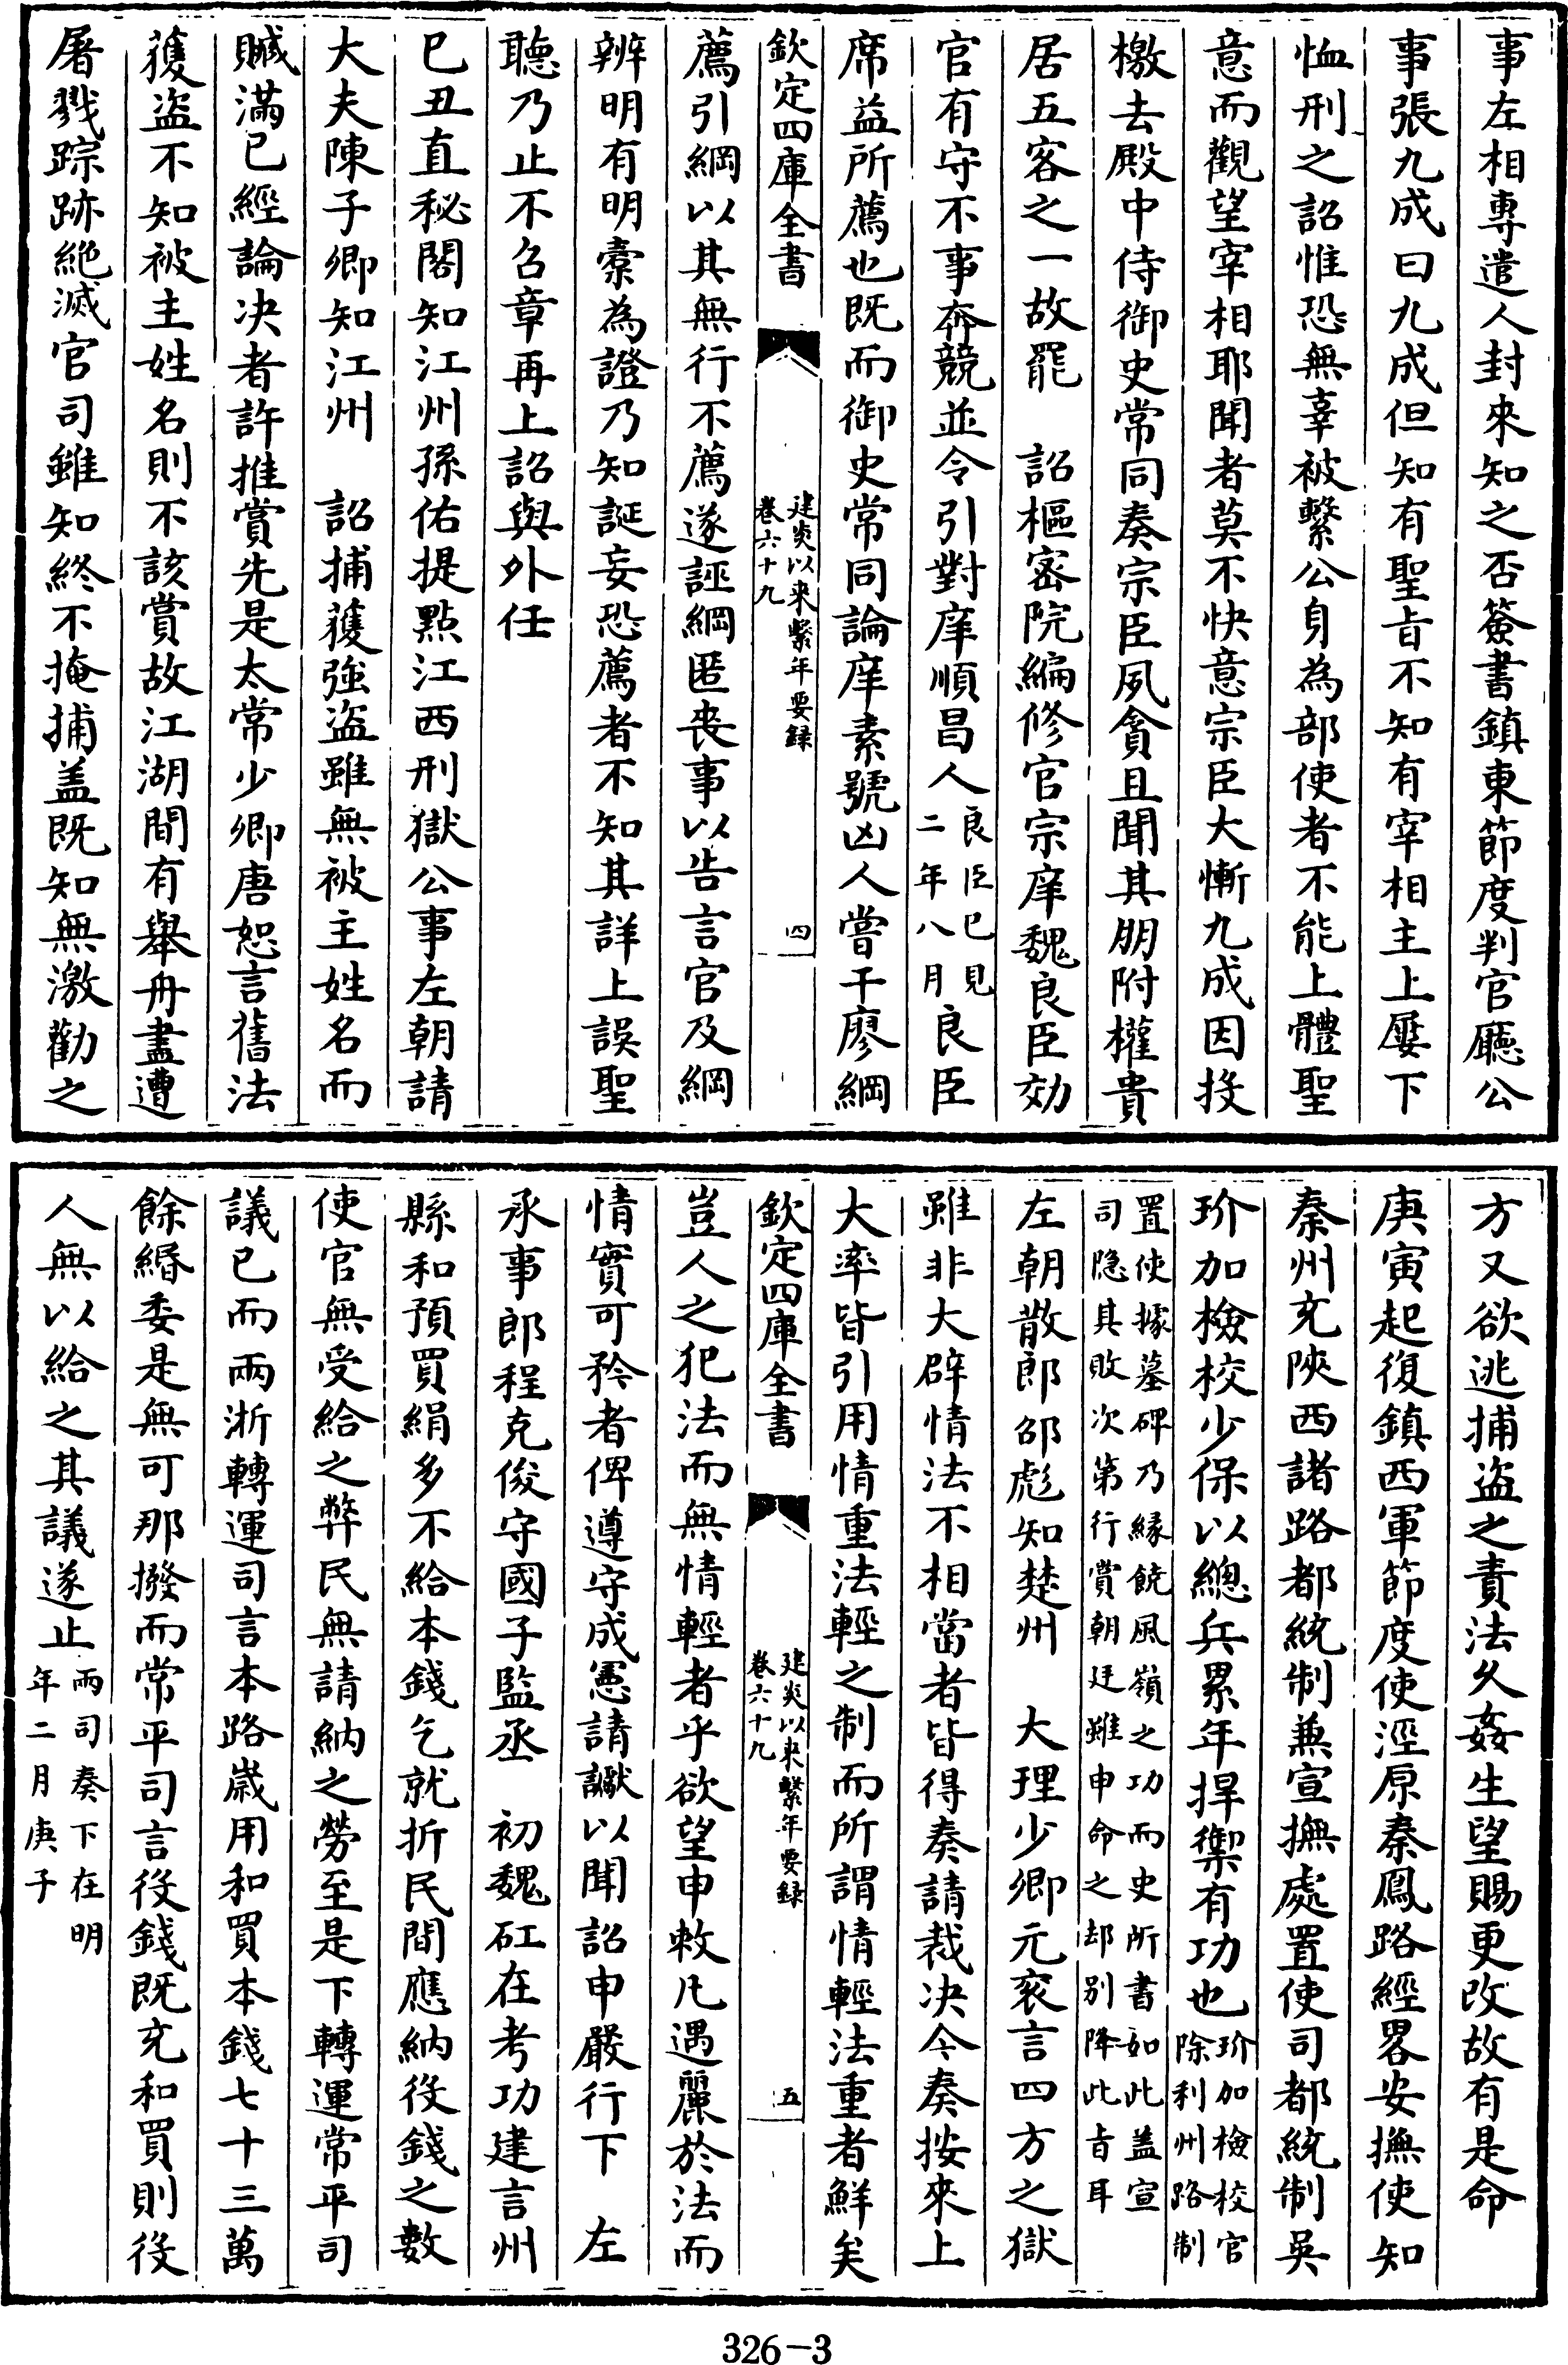 事左相專遣人封來知之否簽書鎮東節度判官廳公
事張九成曰九成但知有聖旨不知有宰相主上屢下
恤刑之詔惟恐無辜被繫公身為部使者不能上體聖
意而觀望宰相耶聞者莫不快意宗臣大慚九成因投
檄去殿中侍御史常同奏宗臣夙貪且聞其朋附權貴
居五客之一故罷　詔樞密院編修官宗庠魏良臣効
官有守不事奔競並令引對庠順昌人良臣已見二年八月良臣
席益所薦也既而御史常同論庠素號凶人嘗干廖綱
欽定四庫全書
建炎以來繫年要録
卷六十九
四
薦引綱以其無行不薦遂誣綱匿喪事以告言官及綱
辨明有明槖為證乃知誕妄恐薦者不知其詳上誤聖
聽乃止不召章再上詔與外任
已丑直秘閣知江州孫佑提點江西刑獄公事左朝請
大夫陳子卿知江州　詔捕獲強盜雖無被主姓名而
贓滿已經論决者許推賞先是太常少卿唐恕言舊法
獲盗不知被主姓名則不該賞故江湖間有舉舟盡遭
屠戮踪跡絶滅官司雖知終不掩捕盖既知無激勸之
方又欲逃捕盗之責法久姦生望賜更改故有是命
庚寅起復鎮西軍節度使涇原秦鳳路經畧安撫使知
秦州充陜西諸路都統制兼宣撫處置使司都統制吳
玠加檢校少保以總兵累年捍禦有功也玠加檢校官除利州路制
置使據墓碑乃緣饒風嶺之功而史所書如此盖宣
司隐其敗次第行賞朝廷雖申命之却别降此旨耳
左朝散郎邵彪知楚州　大理少卿元衮言四方之獄
雖非大辟情法不相當者皆得奏請裁決今奏按來上
大率皆引用情重法輕之制而所謂情輕法重者鮮矣
欽定四庫全書
建炎以來繫年要録
卷六十九
五
豈人之犯法而無情輕者乎欲望申敕凡遇麗於法而
情實可矜者俾遵守成憲請讞以聞詔申嚴行下　左
承事郎程克俊守國子監丞　初魏矼在考功建言州
縣和預買絹多不給本錢乞就折民間應納役錢之數
使官無受給之弊民無請納之勞至是下轉運常平司
議已而兩浙轉運司言本路歲用和買本錢七十三萬
餘緡委是無可那撥而常平司言役錢既充和買則役
人無以給之其議遂止兩司奏下在明年二月庚子
326-3